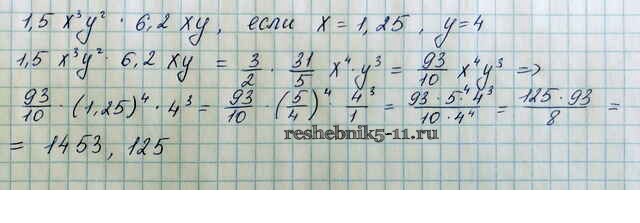 1,5 x³y² · 6,2 xy, если x = 1,25, y=4
1,5 x³y² · 6,2 xy = 3/2 · 31/5 x⁴·y³ = 93/10 x⁴y³ =>
93/10 · (1,25)⁴ · 4³ = 93/10 · (5/4)⁴ · 4³/1 = 93·5⁴·4³/10·4⁴ = 125·93/8 =
= 1453,125
reshebnik5-11.ru